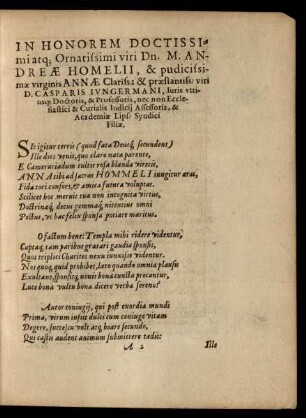 IN HONOREM DOCTISSI-
mi atq; Ornatissimi viri Dn. M. AN-
DREÆ HOMELII, & pudicissi-
mæ virginis ANNÆ Clariss: & præstantiss: viri
D. CASPARIS IVNGERMANI, Iuris vtri-
usq; Doctoris, & Professoris, nec non Eccle-
siastici & Curialis Iudicij Assessoris, &
Academiæ Lips: Syndici
Filiæ.
SIc igitur terris (quod fata Deusq́ secundent)
Ille dies venit, quo claro nata parente,
E Camerariadum cultis rosa blanda viretis,
ANNA tibi ad sacras HOMMELI iungitur aras,
Fida tori consors, & amica futura voluptas.
Scilicet hoc meruit tua non incognita virtus,
Doctrinaq́, decus gemmaq́ nitentius omni
Pectus, vt hac felix sponsa potiare maritus.
O factum bene: Templa mihi ridere videntur,
Captaq́ tam paribus gratari gaudia sponsis,
Quos triplici Charites nexu iunxisse videntur.
Nos quoq́ quid prohibet, læto quando omnia plausu
Exultant, sponsis q́; nouis bona cuncta precantur,
Lute bona vultu bona dicere verba sereno?
Autor coniugij, qui post exordia mundi
Prima, virum iussit dulci cum coniuge vitam
Degere, successu vult atq́ beare secundo,
Qui castis audent animum submittere tædis:
A 2
Ille